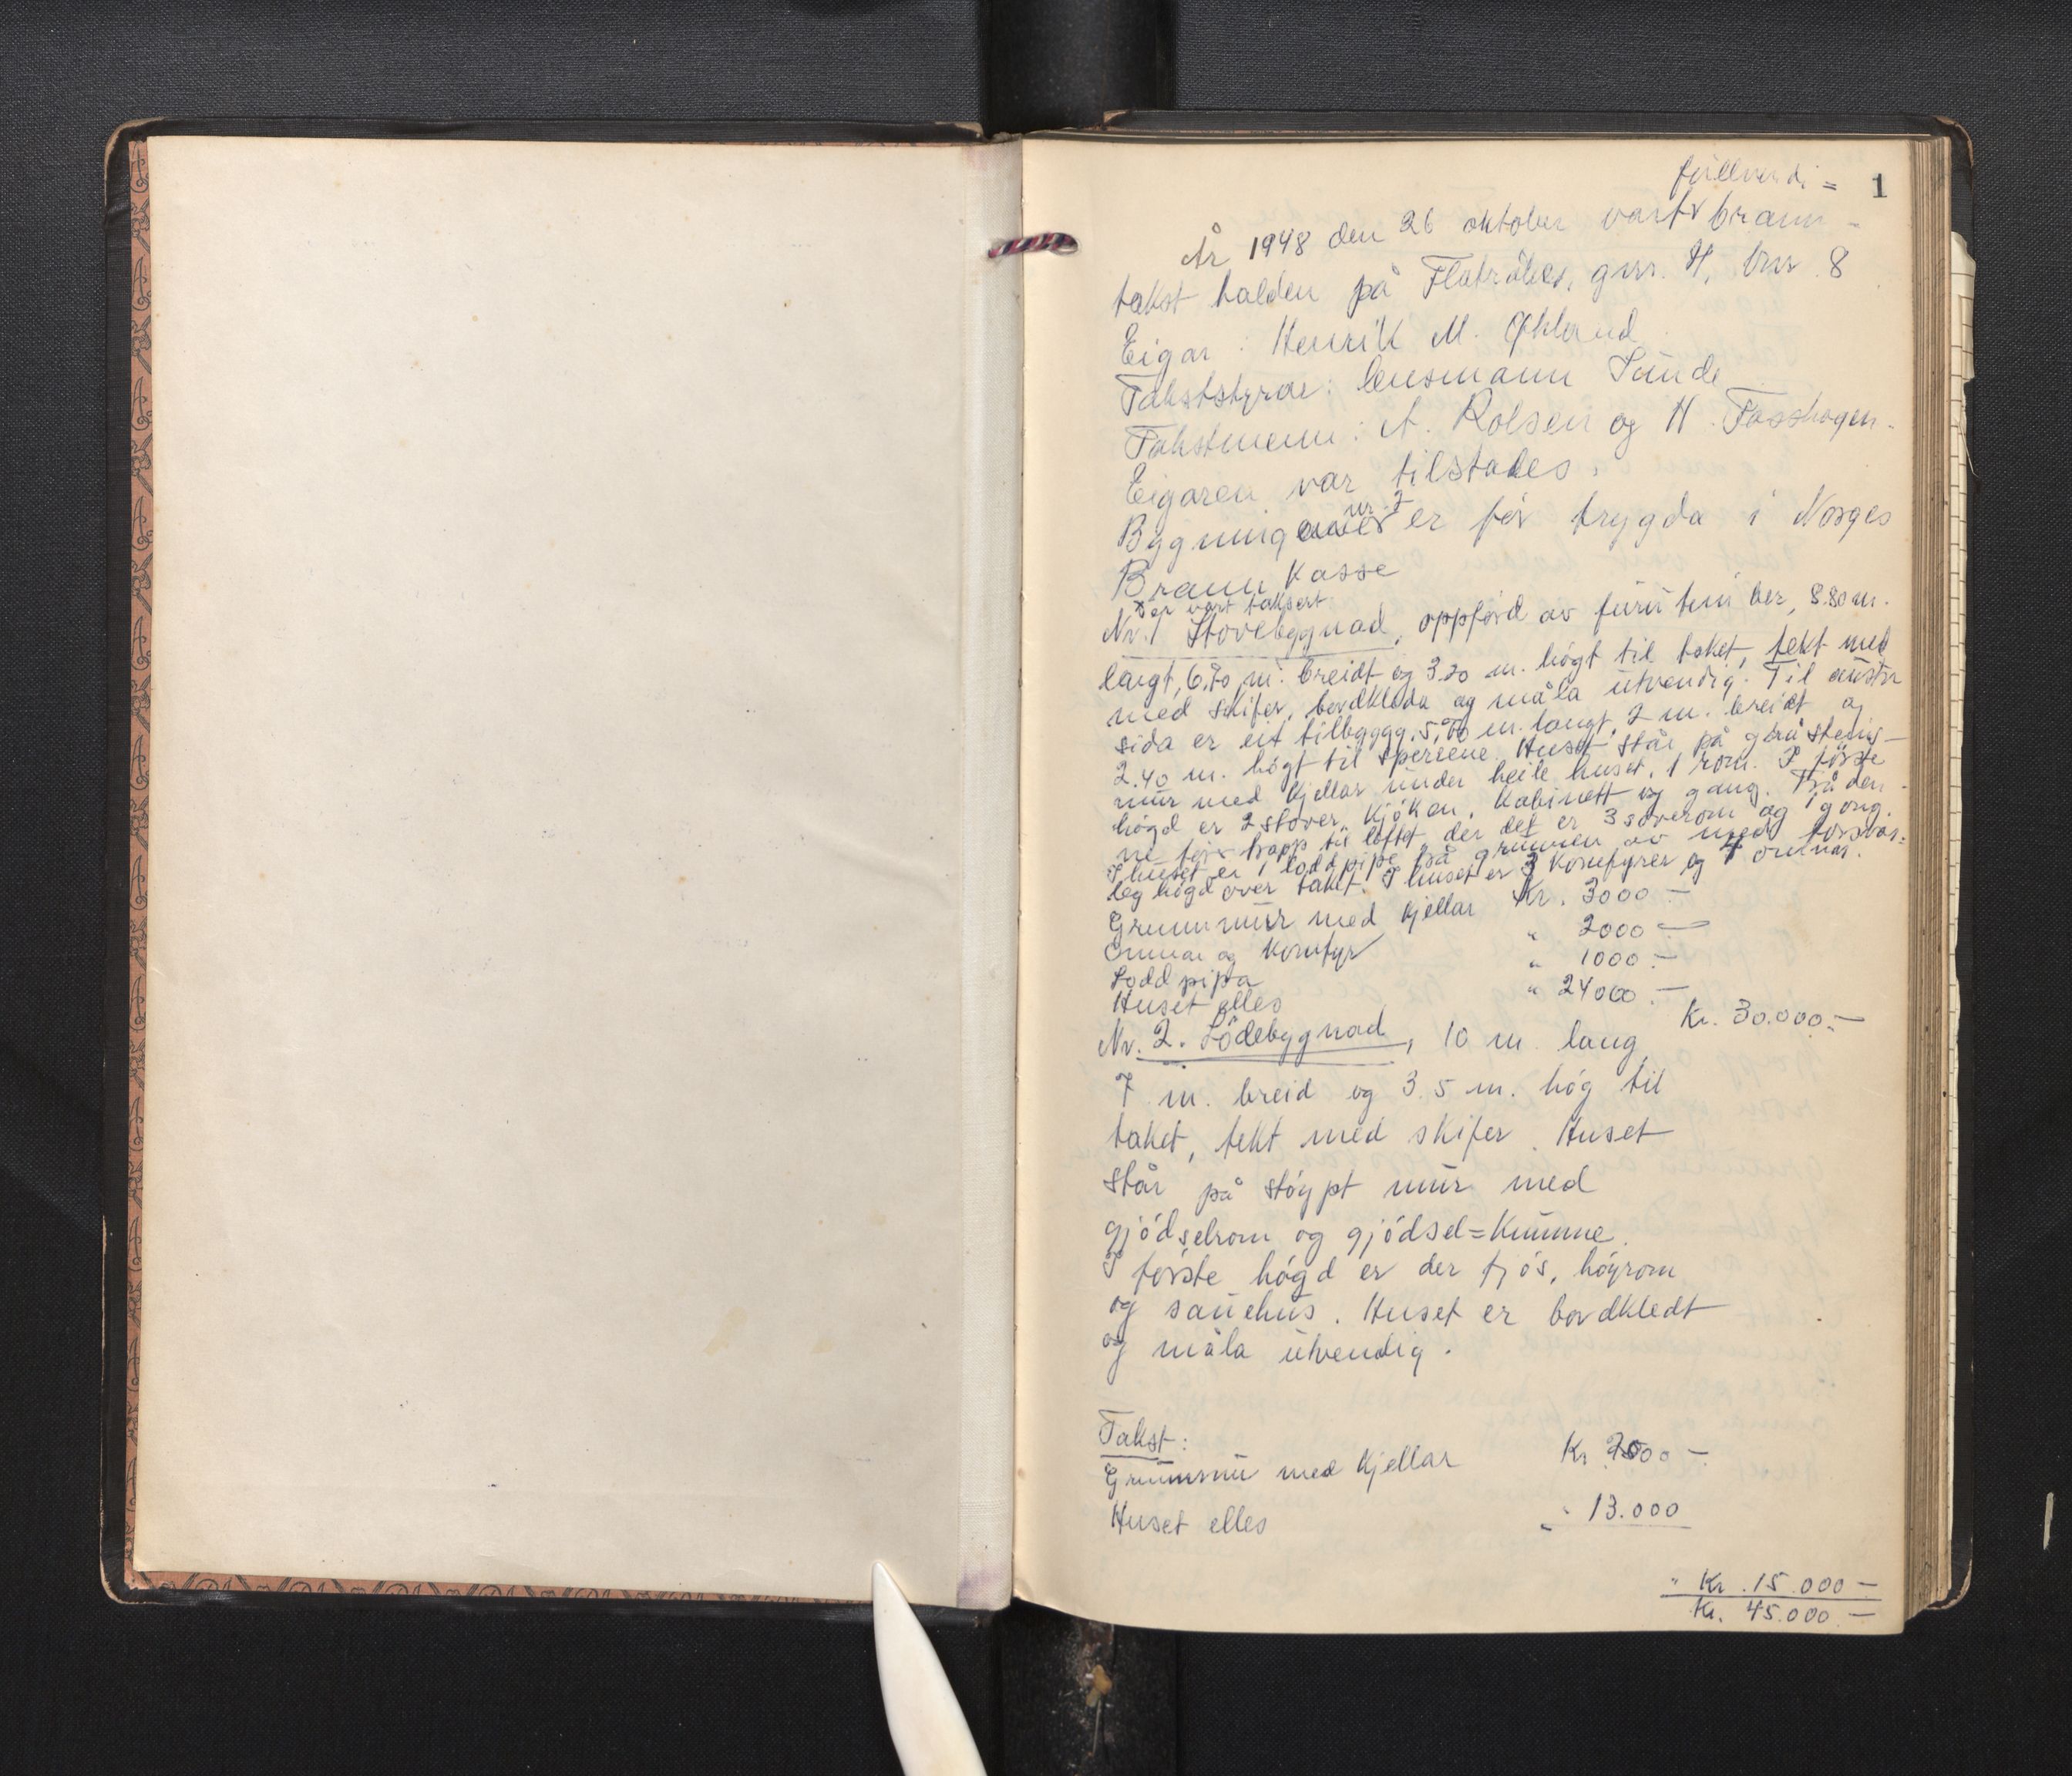 fullverdi = 1
År 1948 den 26 oktober vart brann=
takst halden på Flatråker, gnr. 4, bnr. 8
Eigar: Henrik M. Økland
Takststyrar: lensmann Sunde
Takstmenn: A. Rolsen og H. Tosshagen.
Eigaren var tilstades.
nr. 2
Bygningane er før trygda i Norges
Brannkasse
er vart taksert:
Nr. 1 Stovebygnad, oppförd av furutimber, 8.80 m.
langt, 6,70 m. breidt og 3.20 m. högt til taket, tekt med
med skifer, bordkledd og måla utvendig. Til austr
sida er eit tilbyggg, 5,70 m. langt, 2 m. breidt og
2.40 m. högt til sperrene. Huset står på gråsteins-
mur med kjellar under heile huset, 1 rom. I förste
högd er 2 stover, kjöken, kabinett og gang. Frå den-
ne förer trapp til loftet, der det er 3 soverom og 1 gong.
I huset er 1 loddpipe frå grunnen av med forsvar=
leg högd over taket. I huset er 3 komfyrer og 4 omnar.
Grunnmur med kjellar Kr. 3000.-
Omnar og komfyr " 2000 -
Loddpipa " 1000.-
Huset elles " 24000.-
Kr. 30.000.-
Nr. 2. Lödebygnad, 10 m lang,
7 m. breid og 3.5 m. hög til
taket, tekt med skifer. Huset
står på stöypt mur med
gjödselrom og gjödsel=kumme.
I förste högd er der fjös, höyrom
og sauehus. Huset er bordkledt
og måla utvendig.
Takst:
Grunnmur med kjellar Kr. 2000 -
Huset elles " 13.000
" Kr. 15.000 -
Kr. 45.000 -